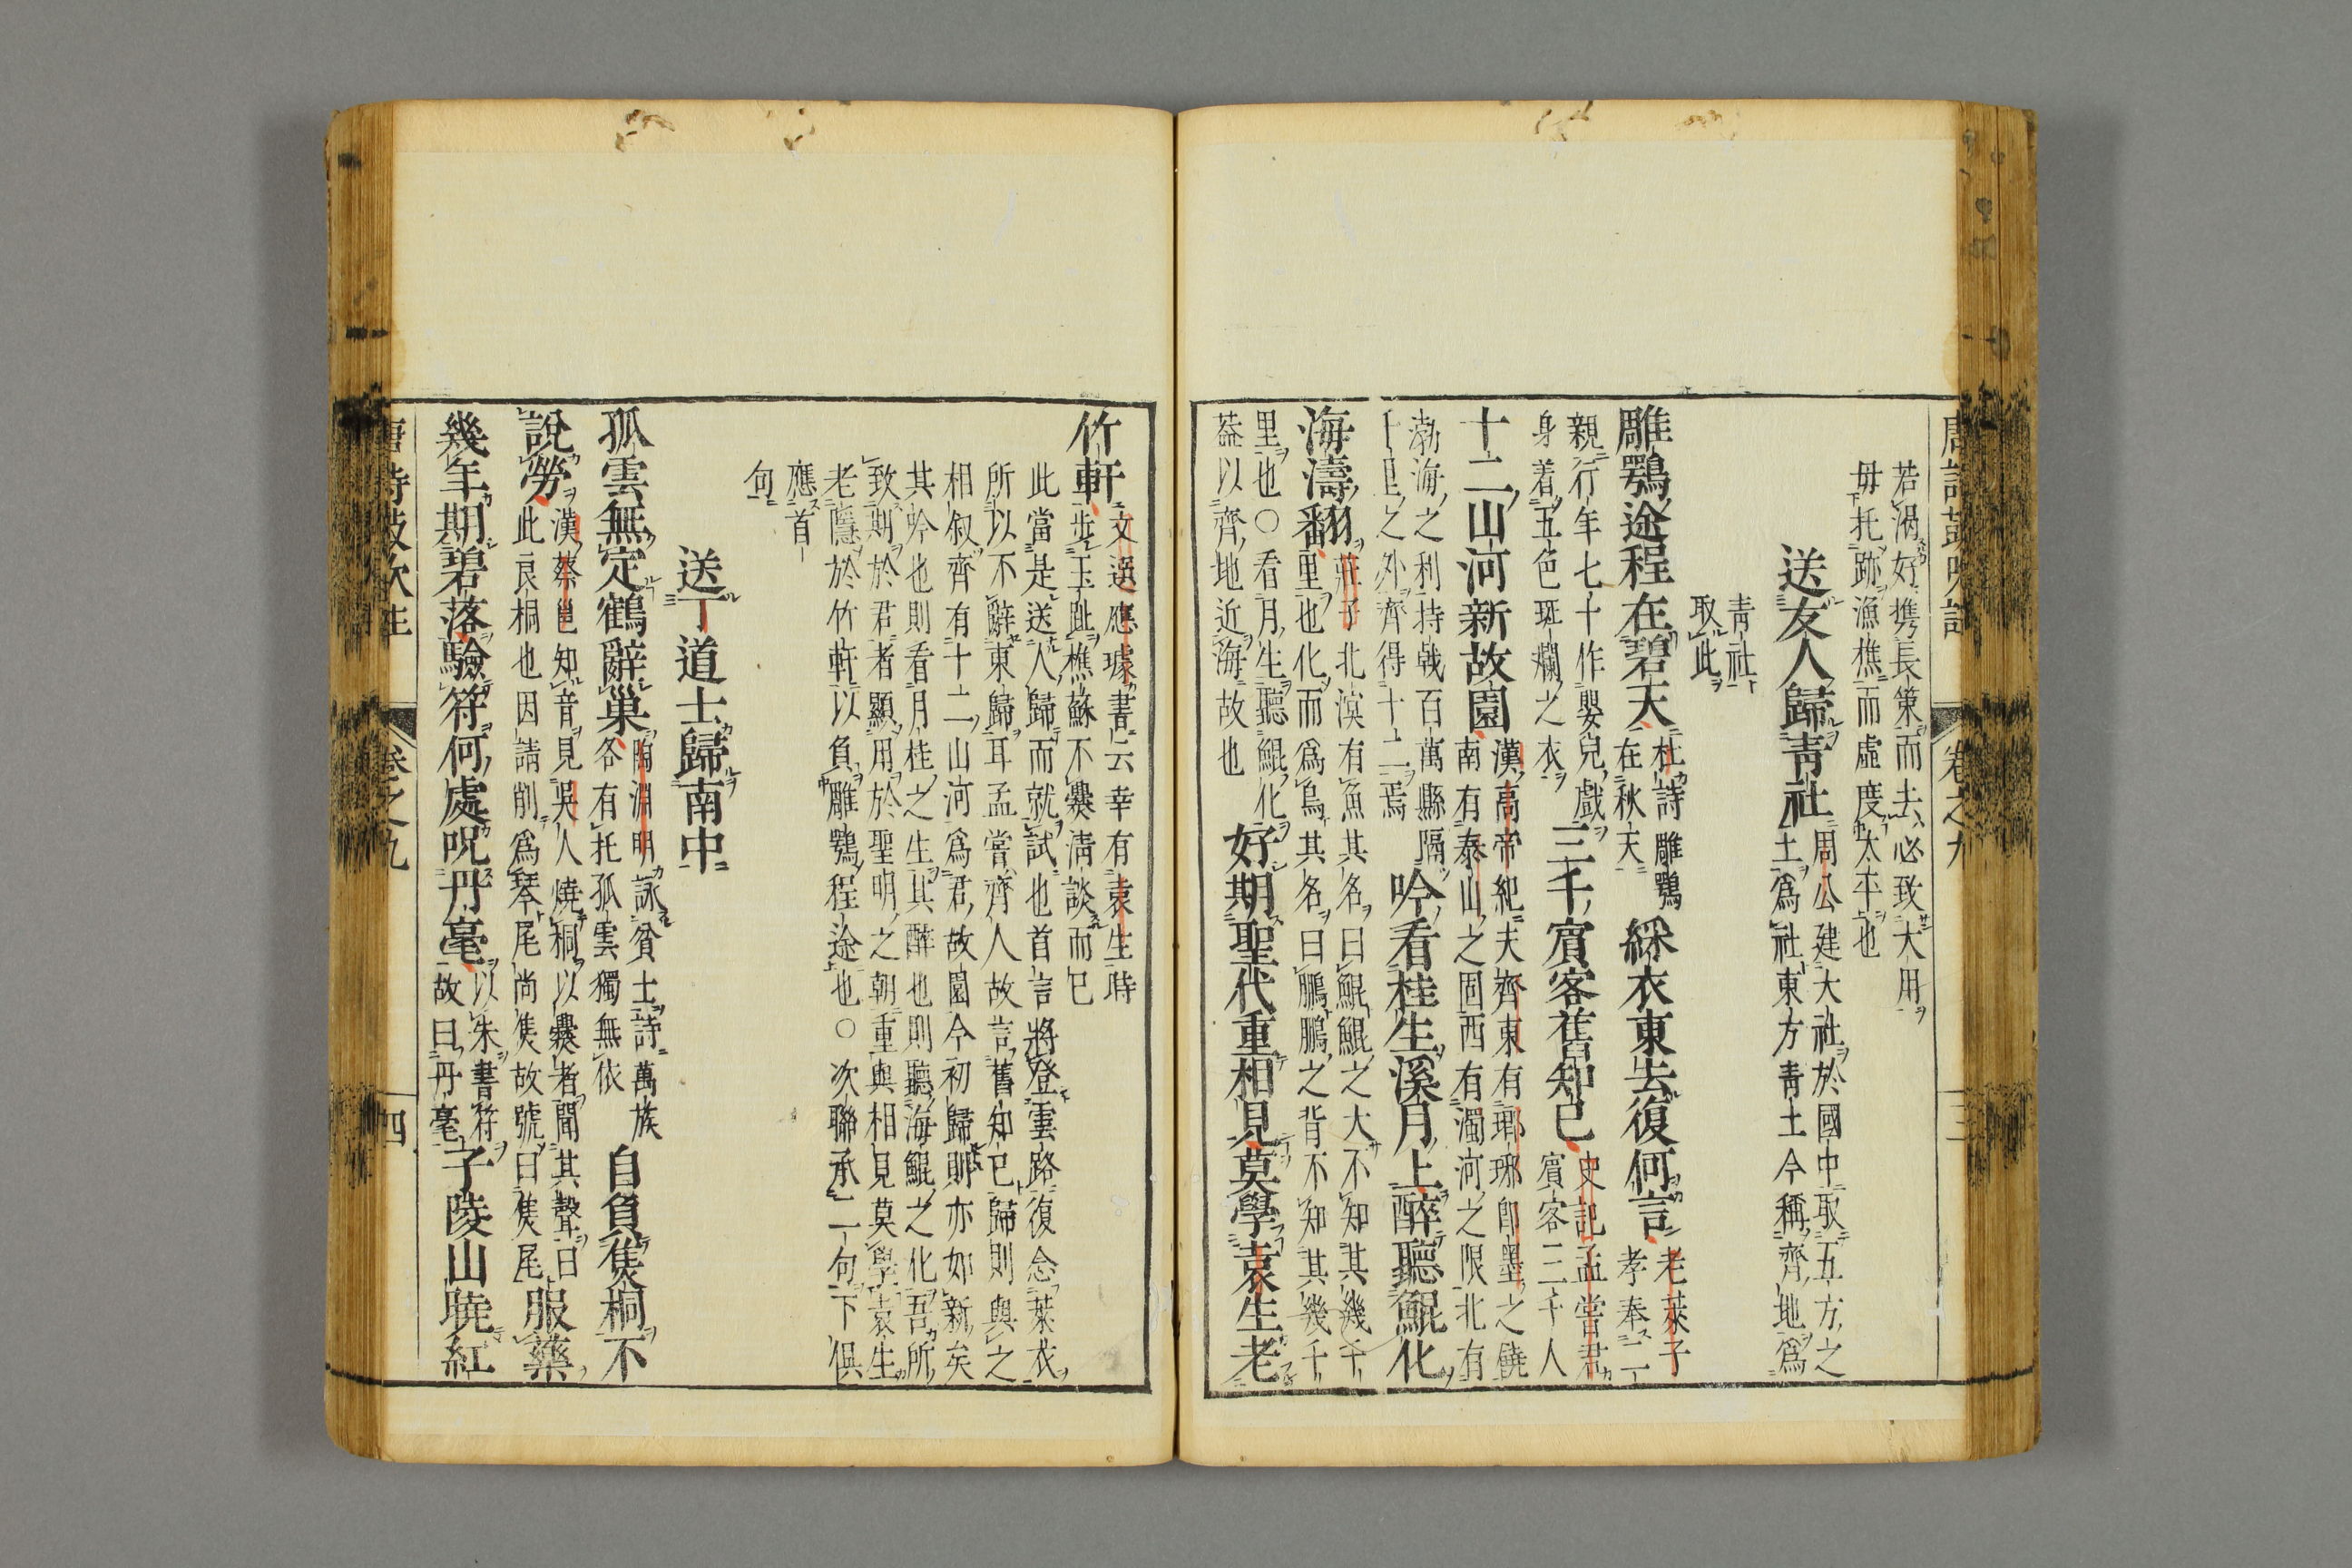 唐詩鼓吹註
卷之九
三
若渦好携長策而去必致大用
毋托跡漁樵而虛度太平也
送友人歸靑社
周公建大社於國中取五方之
土爲社東方靑土今稱齊地爲
靑社
取此
雕鶚途程在碧天
杜詩雕鶚
在秋天
綵衣東去復何言
老萊子
孝奉二
親行年七十作嬰兒戲
身着五色斑爛之衣
三千賓客舊知己
史記孟嘗君
賓客三千人
十二山河新故園
漢高帝紀夫齊東有瑯琊卽墨之饒
南有泰山之固西有濁河之限北有
渤海之利持戟百萬縣隔
千里之外齊得十二焉
吟看桂生溪月上醉聽鯤化
海濤翻
莊子北溟有魚其名曰鯤鯤之大不知其幾千
里也化而爲鳥其名曰鵬鵬之背不知其幾千
里也〇看月生聽鯤化
葢以齊地近海故也
好期聖代重相見莫學袁生老
竹軒
文選應璩書云幸有袁生時
步玉趾樵蘇不爨淸談而已
此當是送人歸而就試也首言將登雲路復念萊衣
所以不辭東歸耳孟嘗齊人故言舊知己歸則與之
相叙齊有十二山河爲君故園今初歸則亦如新矣
其吟也則看月桂之生其醉也則聽海鯤之化吾所
致期於君者顯用於聖明之朝重與相見莫學袁生
老隱於竹軒以負雕鶚程途也〇次聯承二句下俱
應首
句
送丁道士歸南中
孤雲無定鶴辭巢
陶淵明詠貧士詩萬族
各有托孤雲獨無依
自負焦桐不
說勞
漢蔡邕知音見吳人燒桐以爨者聞其聲曰
此良桐也因請削爲琴尾尚焦故號曰焦尾
服藥
幾年期碧落驗符何處呪丹毫
以朱書符
故曰丹毫
子陵山曉紅
唐詩鼓吹註
卷之九
四